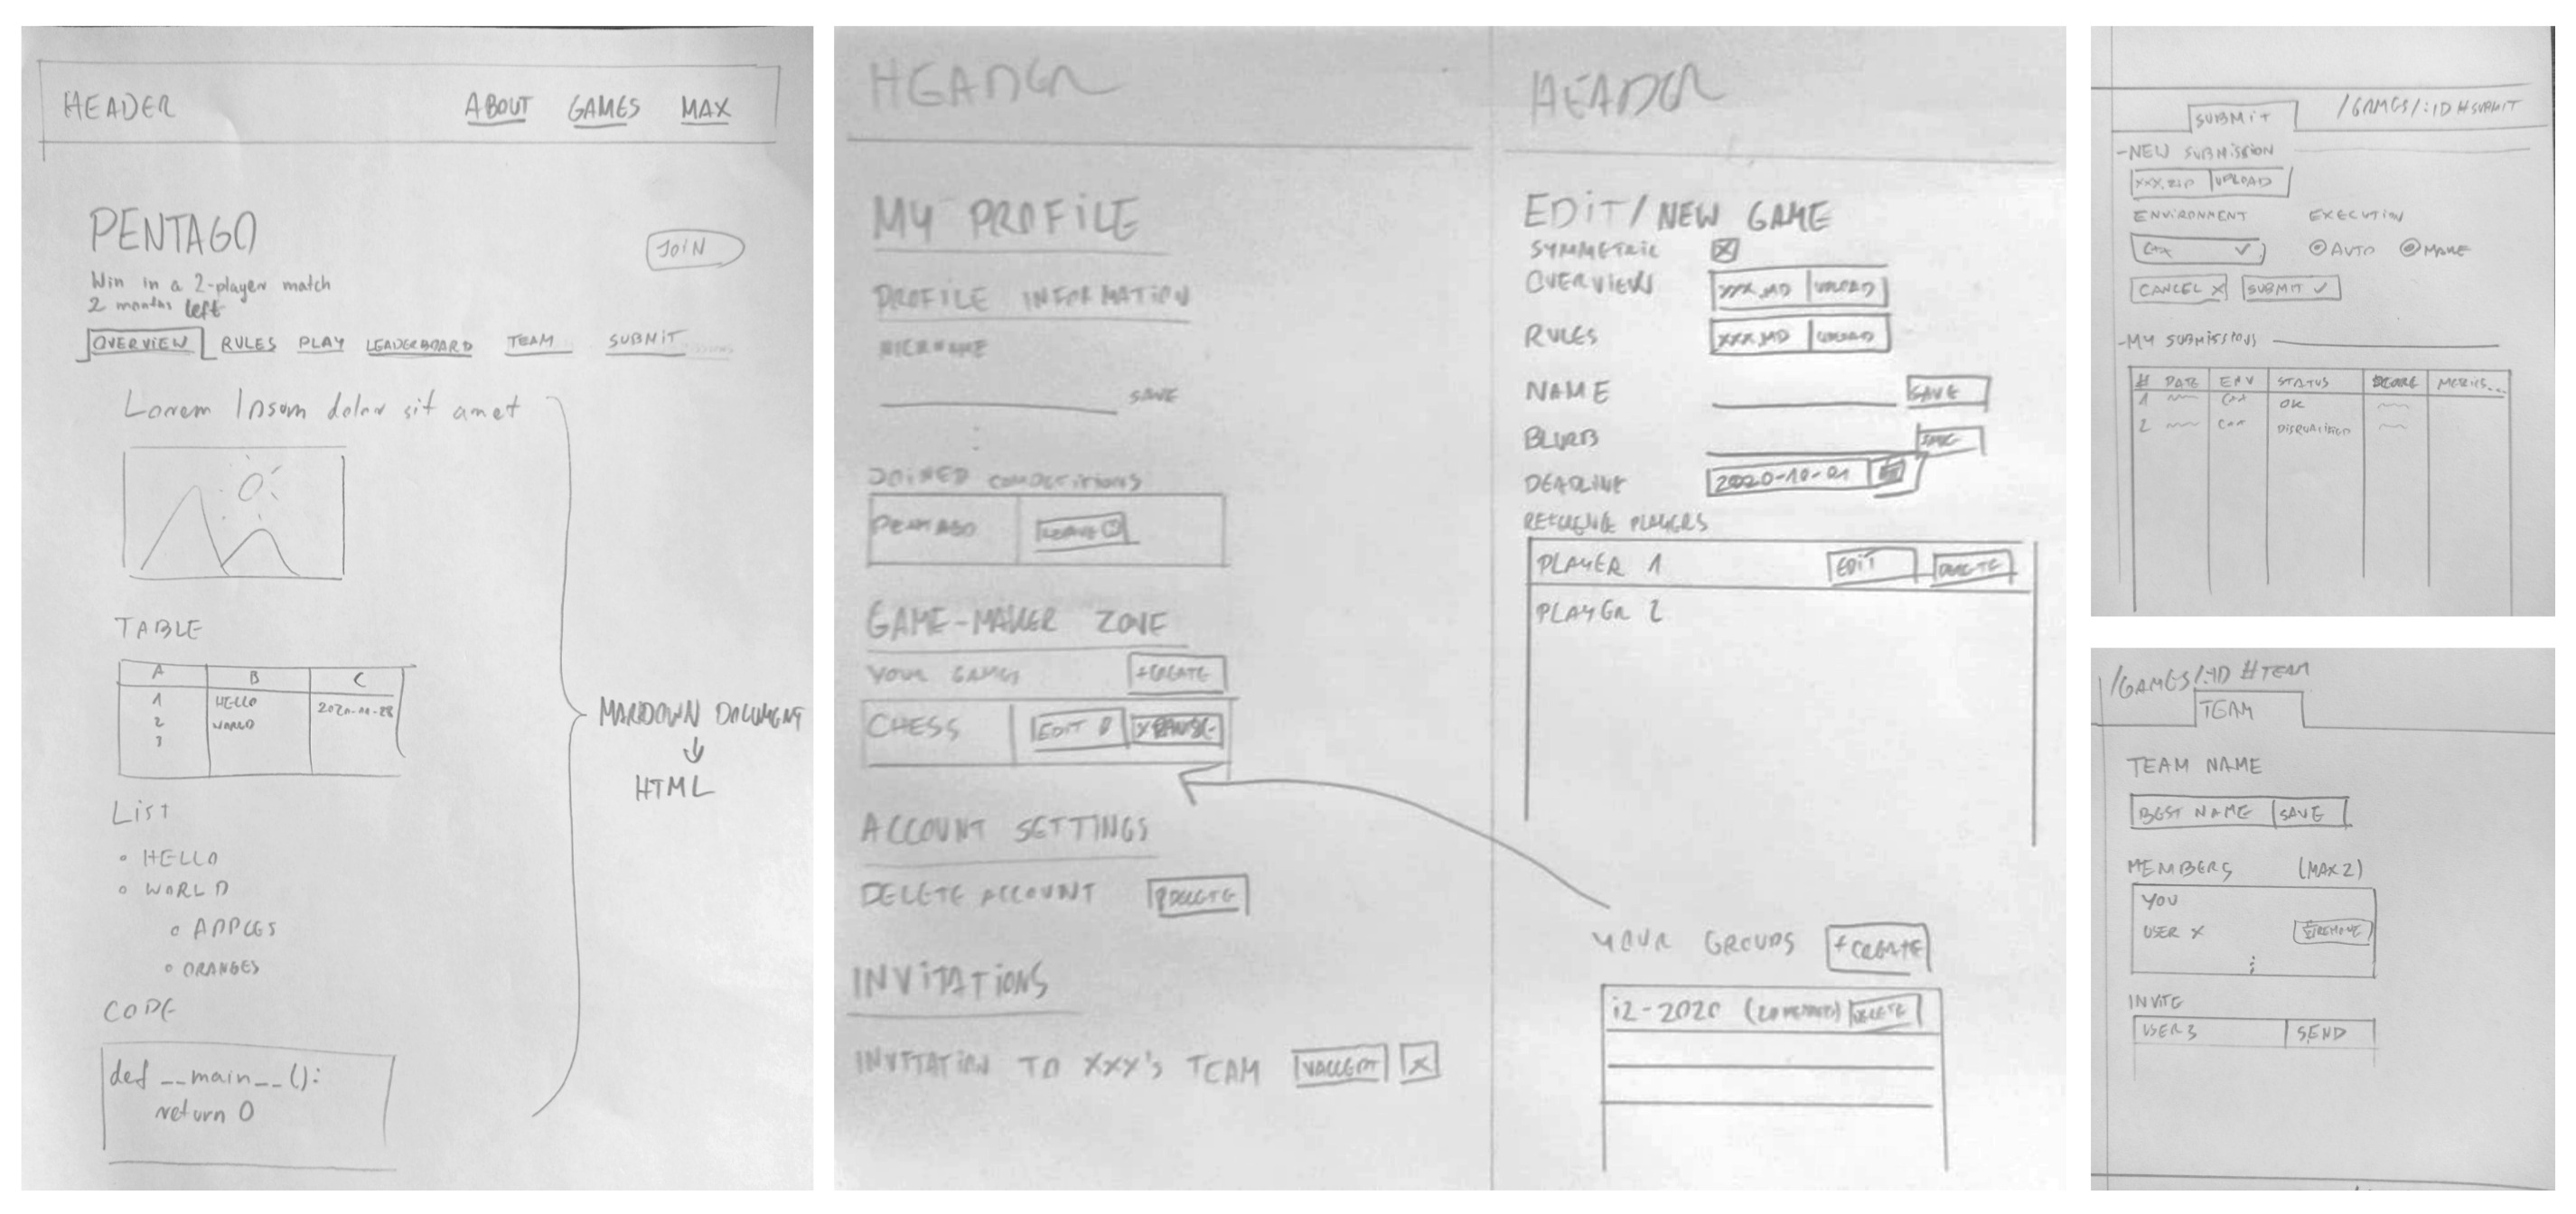 HEADER ABOUT GAMES MAX
PENTAGO
JOIN
Win in a 2-player match
2 months left
OVERVIEW RULES PLAY LEADERBOARD TEAM SUBMIT
Lorem Ipsum dolor sit amet
TABLE
A B C
1 HELLO 2020-11-28
2 WORLD
3
LIST
HELLO
WORLD
APPLES
ORANGES
CODE
def __main__():
return 0
MARDOWN DOCUMENT
HTML
HEADER
MY PROFILE
PROFILE INFORMATION
NICKNAME
SAVE
JOINED COMPETITIONS
PENTAGO LEAVE
GAME-MAKER ZONE
YOUR GAMES +CREATE
CHESS EDIT
ACCOUNT SETTINGS
DELETE ACCOUNT DELETE
INVITATIONS
INVITATION TO XXX'S TEAM ACCEPT X
HEADER
EDIT/NEW GAME
SYMMETRIC
OVERVIEW XXX.MD UPLOAD
RULES XXX.MD UPLOAD
NAME SAVE
BLURB SAVE
DEADLINE 2020-10-01
REFERENCE PLAYERS
PLAYER 1 EDIT DELETE
PLAYER 2
YOUR GROUPS +CREATE
i2-2020 DELETE
SUBMIT /GAMES/:ID#SUBMIT
-NEW SUBMISSION
XXX.ZIP UPLOAD
ENVIRONMENT EXECUTION
C++ AUTO MAKE
CANCEL X SUBMIT ✓
-MY SUBMISSIONS
# DATE ENV STATUS SCORE METRICS...
1 C++ OK
2 C++ DISQUALIFIED
/GAMES/:ID#TEAM
TEAM
TEAM NAME
BEST NAME SAVE
MEMBERS (MAX 2)
YOU
USER X REMOVE
INVITE
USER3 SEND